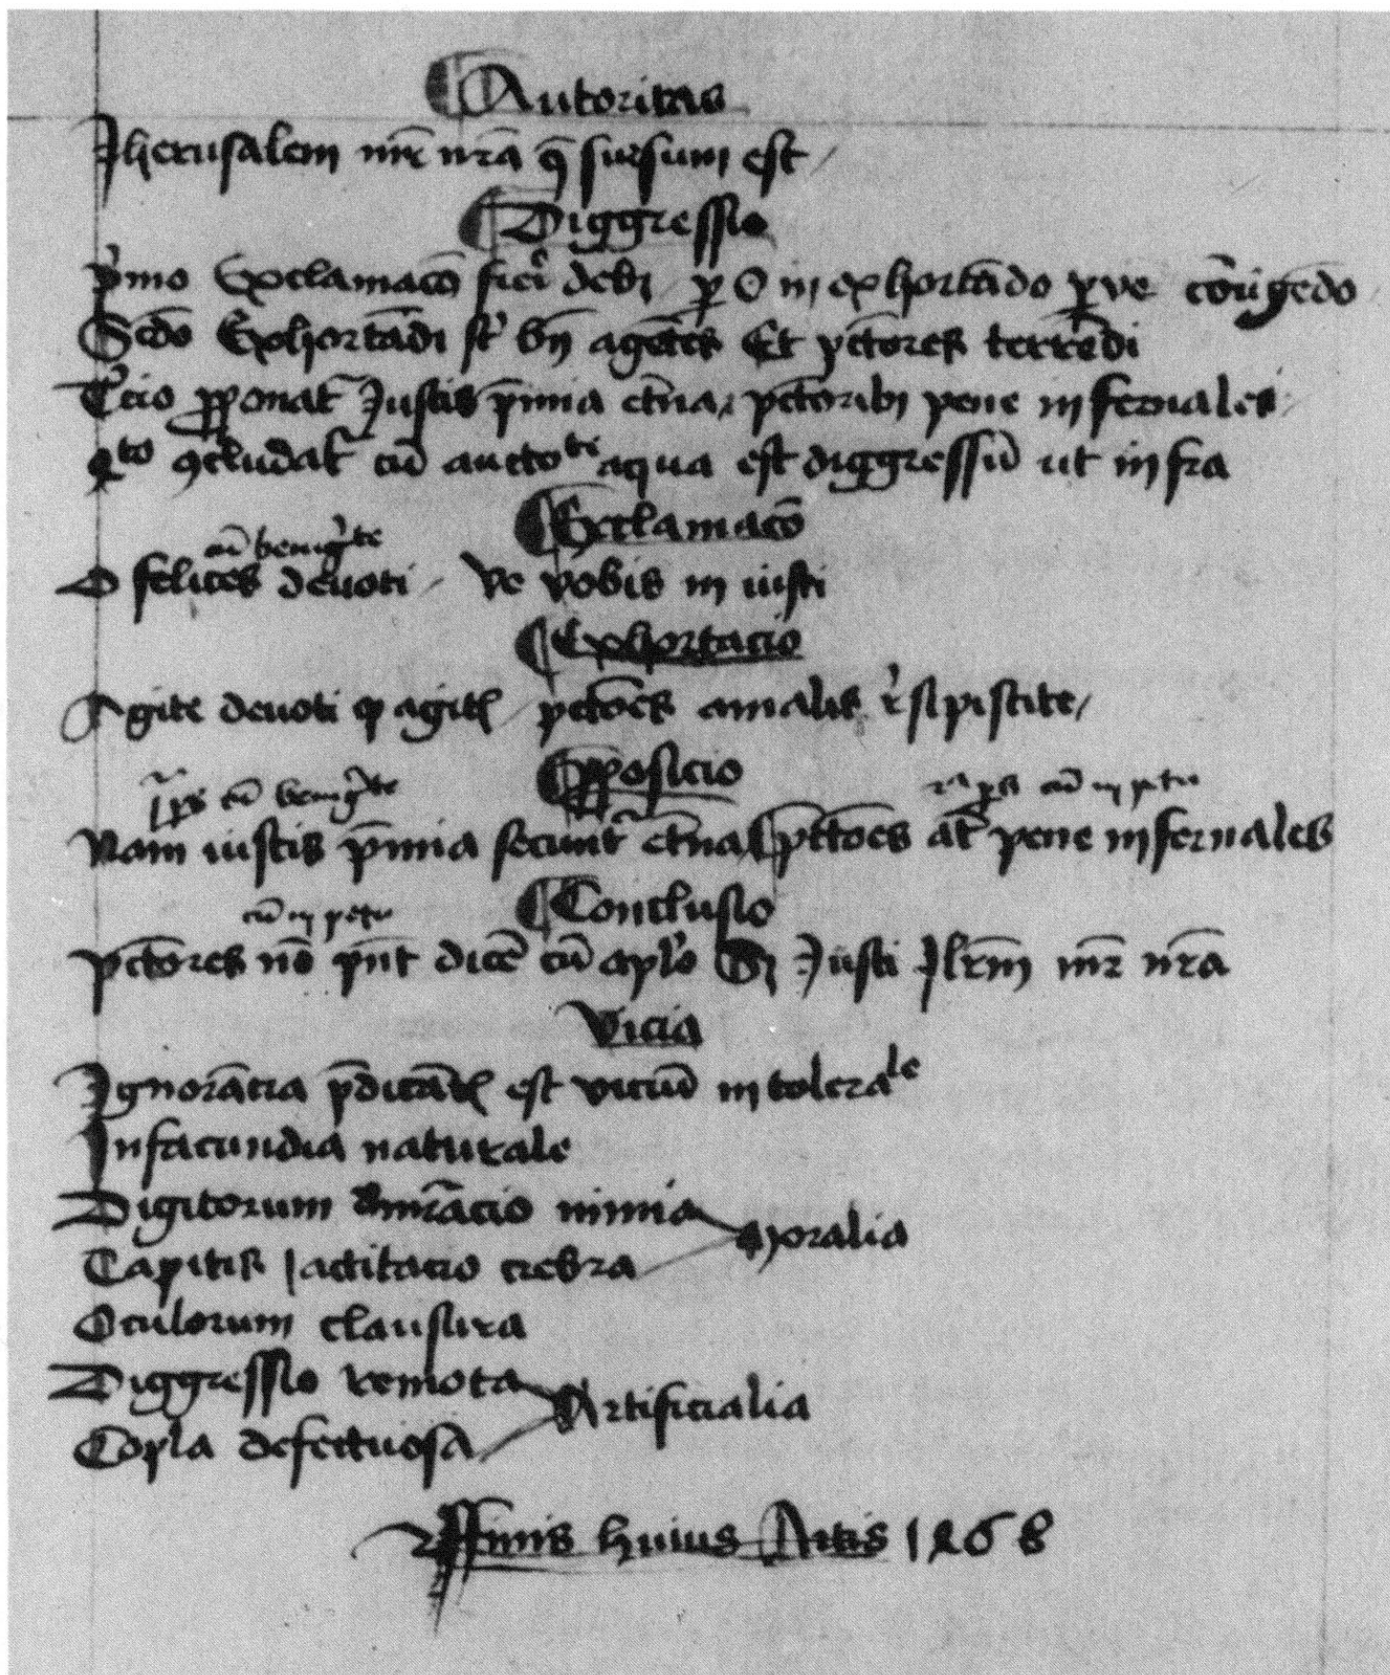 Autoritas
Jherusalem mr̄ nr̄a q̄ sursum est
Diggressio
p̓mo Exclamacō fieri debȝ ꝑ O in exhortādo ꝑ ve corrigēdo
Scd̄o Exhortādi st̄ bn̄ agētes Et pctōres terrēdi
Tcio ꝓponat̄ Justis p̄mia et̄na pctōribȝ pene infernales
qͭᵒ ꝯcludat̄ cū auctoᵗᵉ aqua est diggressū ut infra
Exclamacō
cū benigᵗᵉ
O felices devoti ve vobis in iusti
Exhortacio
Agite devoti qꝫ agitꝭ pctōes amalis resipiscite
Ꝓposicio
cū benigᵗᵉ cū inpetu
Nam iustis p̄mia secunt̄ et̄na pctōes at̄ pene infernales
cū inpetu
Conclusio
pctōres nō pn̄t dicē cū aplo Sȝ Justi Jlrm̄ mr̄ nr̄a
Vicia
Ignorācia p̄dicātꝭ est viciū intoleraˡᵉ
Infacundia naturale
Digitorum dmr̄acio nimia
Moralia
Capitis Jactitacio crebra
Oculorum clausura
Diggressio remota
Artificialia
Copla defectuosa
Finis huius Artis 1468